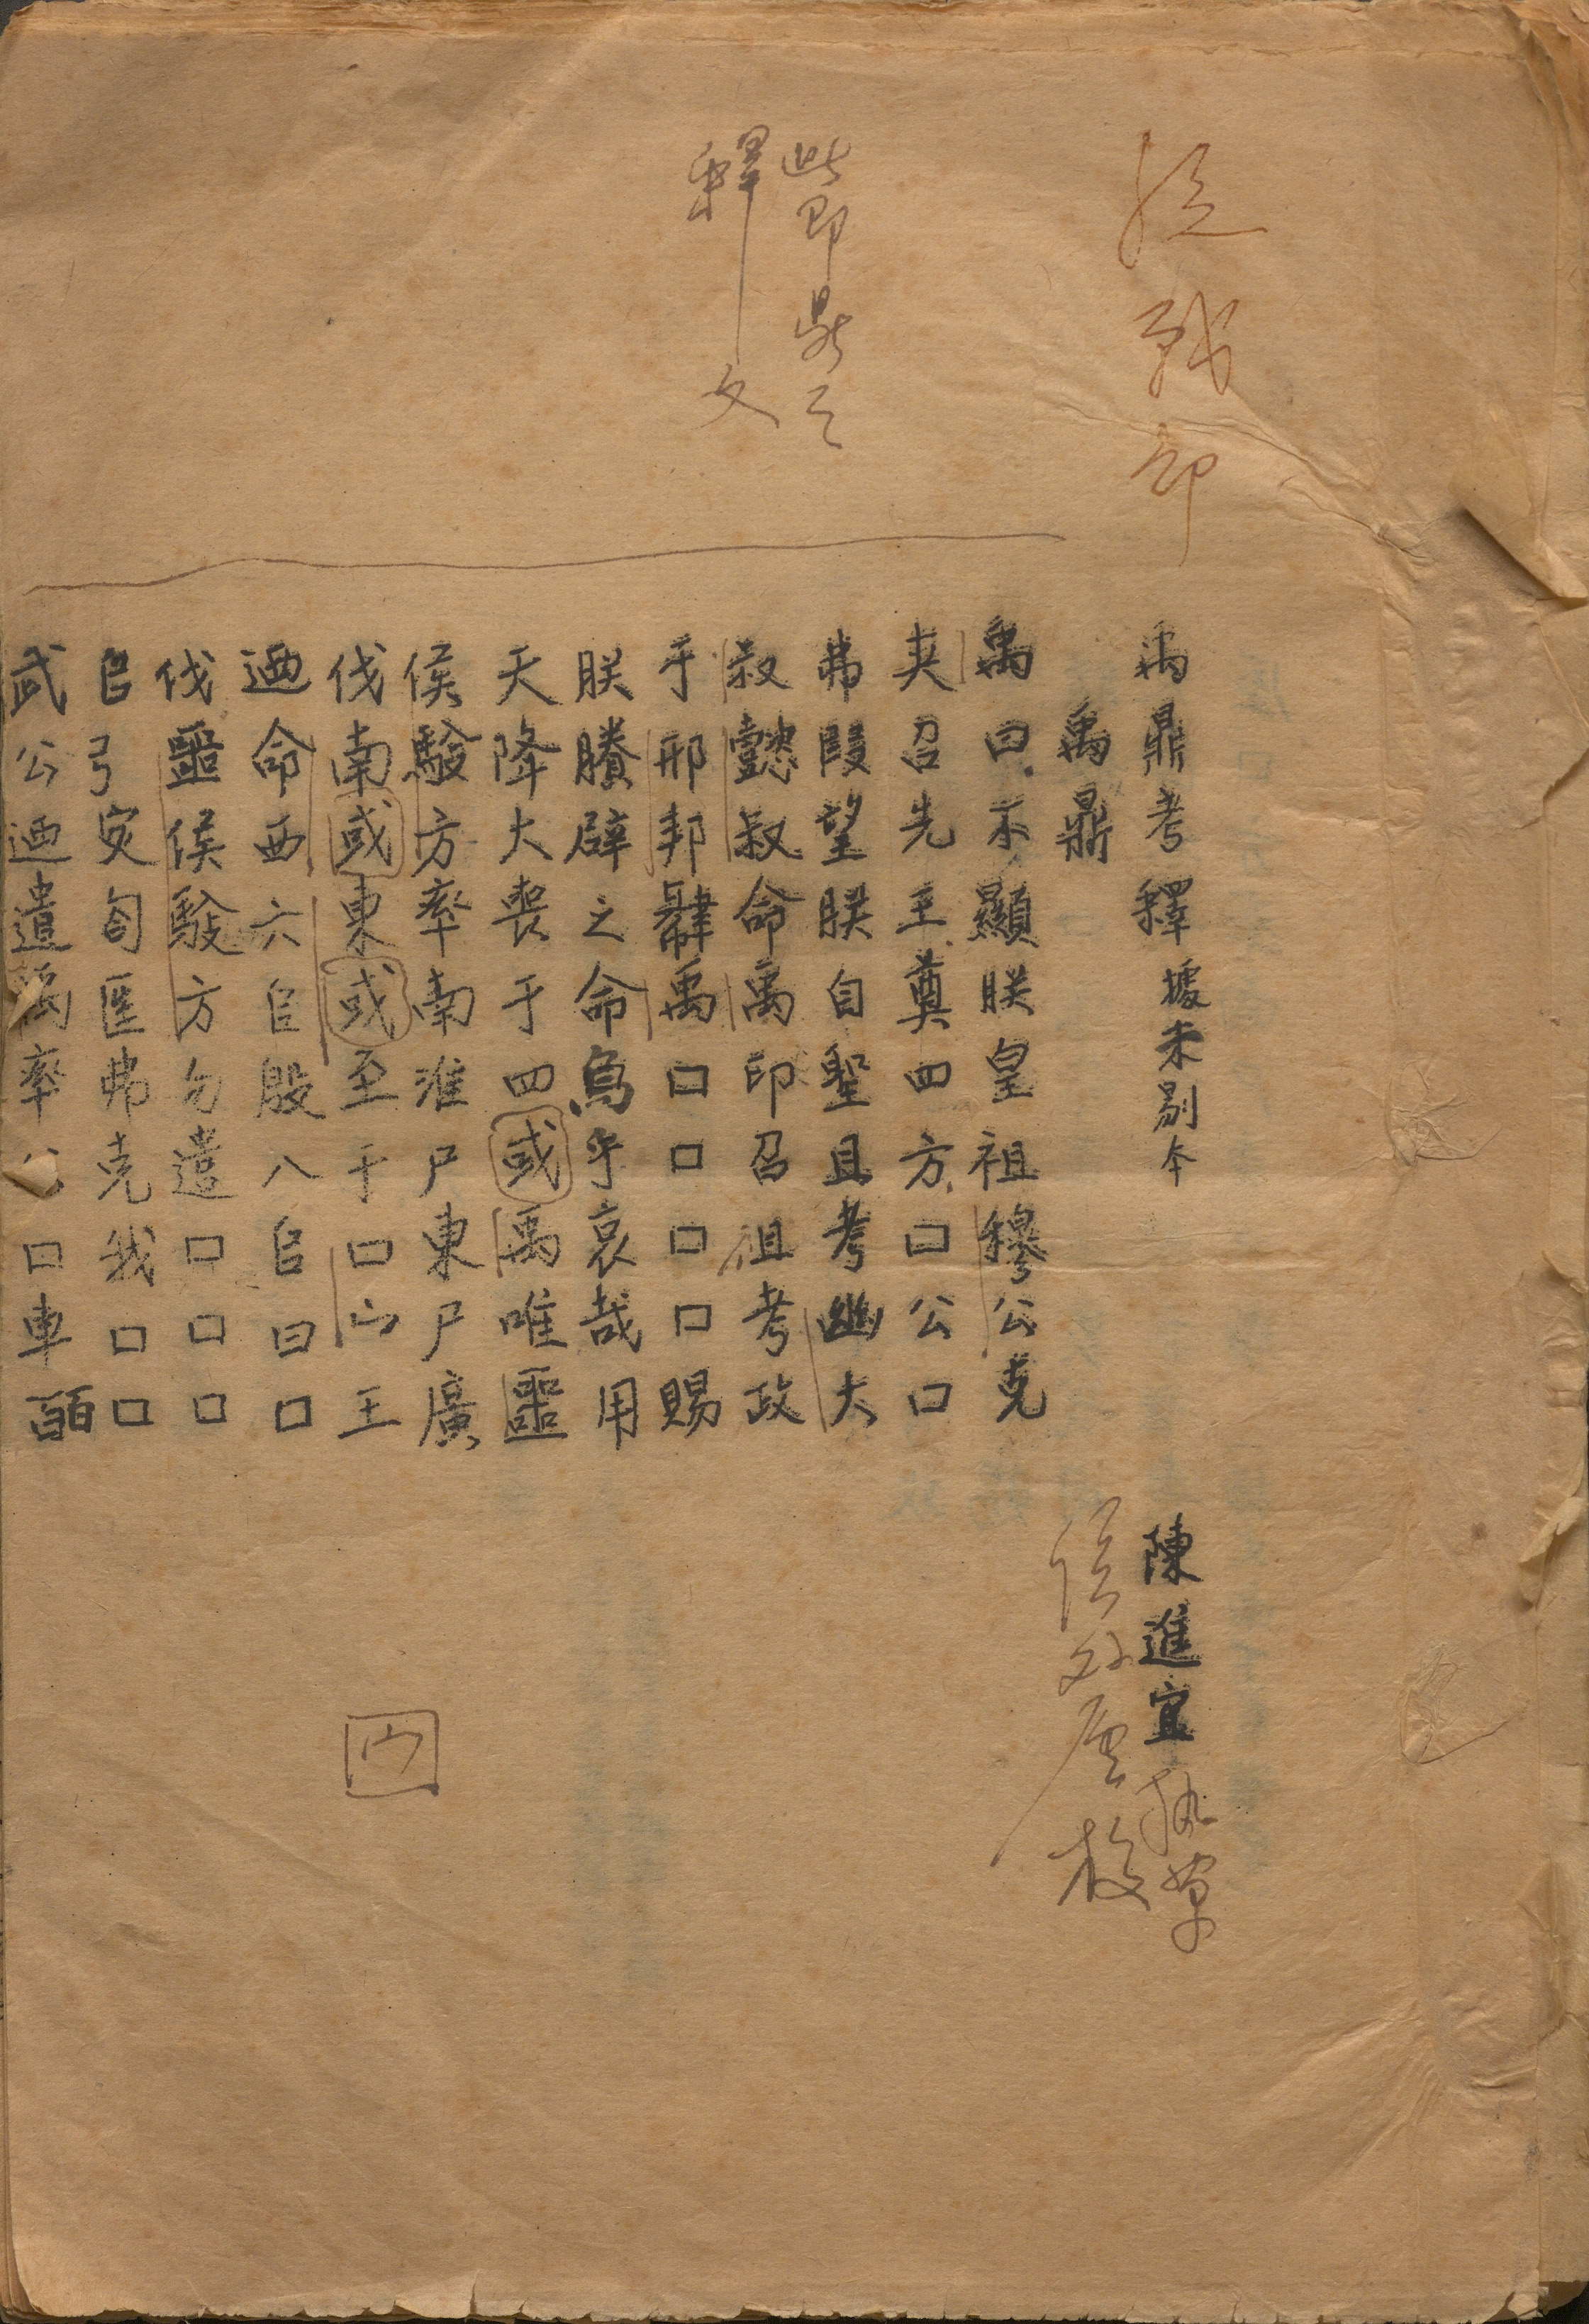 此即鼎之
釋文
禹鼎考釋 據未剔本
陳進宜 執筆
侯外廬 校
禹鼎
禹曰不顯朕皇祖穆公克
夾召先王奠四方口公口
弗叚望朕自聖且考幽大
叔懿叔命禹㐆召祖考政
于邢邦肆禹口口口口賜
朕賸辟之命烏乎哀哉用
天降大喪于四或禹唯噩
侯馭方率南淮尸東尸廣
伐南或東或至于口㝉王
迺命西六𠂤殷八𠂤曰口
伐噩侯馭方勿遣口口口
𠂤弓宊匌匩弗克我口口
武公迺遣禹率公口車百